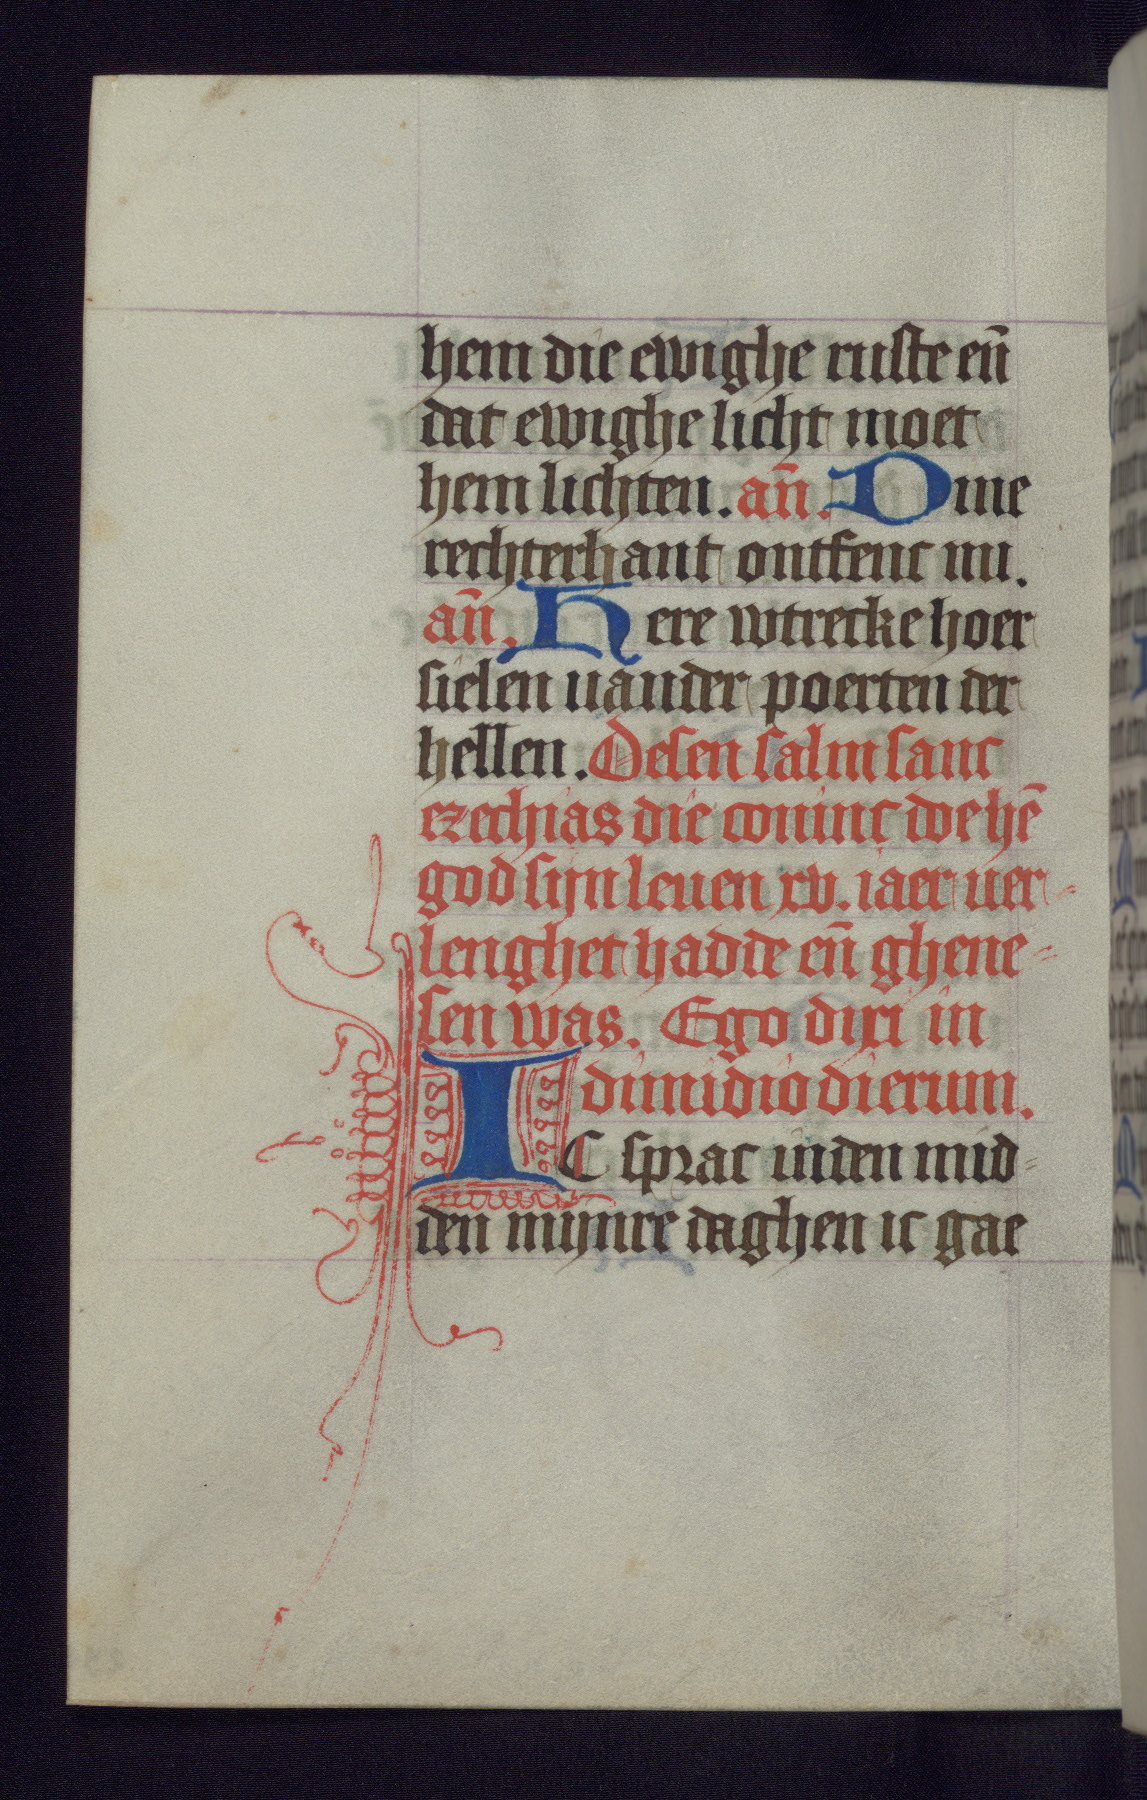 hem die ewighe ruste en̄
dat ewighe licht moet
hem lichten. an̄. Dine
rechterhant ontfenc mi.
an̄. Here wtrecke hoer
sielen vander poerten der
hellen. Desen salm sanc
ezechias die coninc doe hē
god sijn leuen xv. iaer ver-
lenghet hadde en̄ ghene-
sen was. Ego dixi in
dimidio dierum.
IC sprac inden mid-
den mijnre daghen ic gae